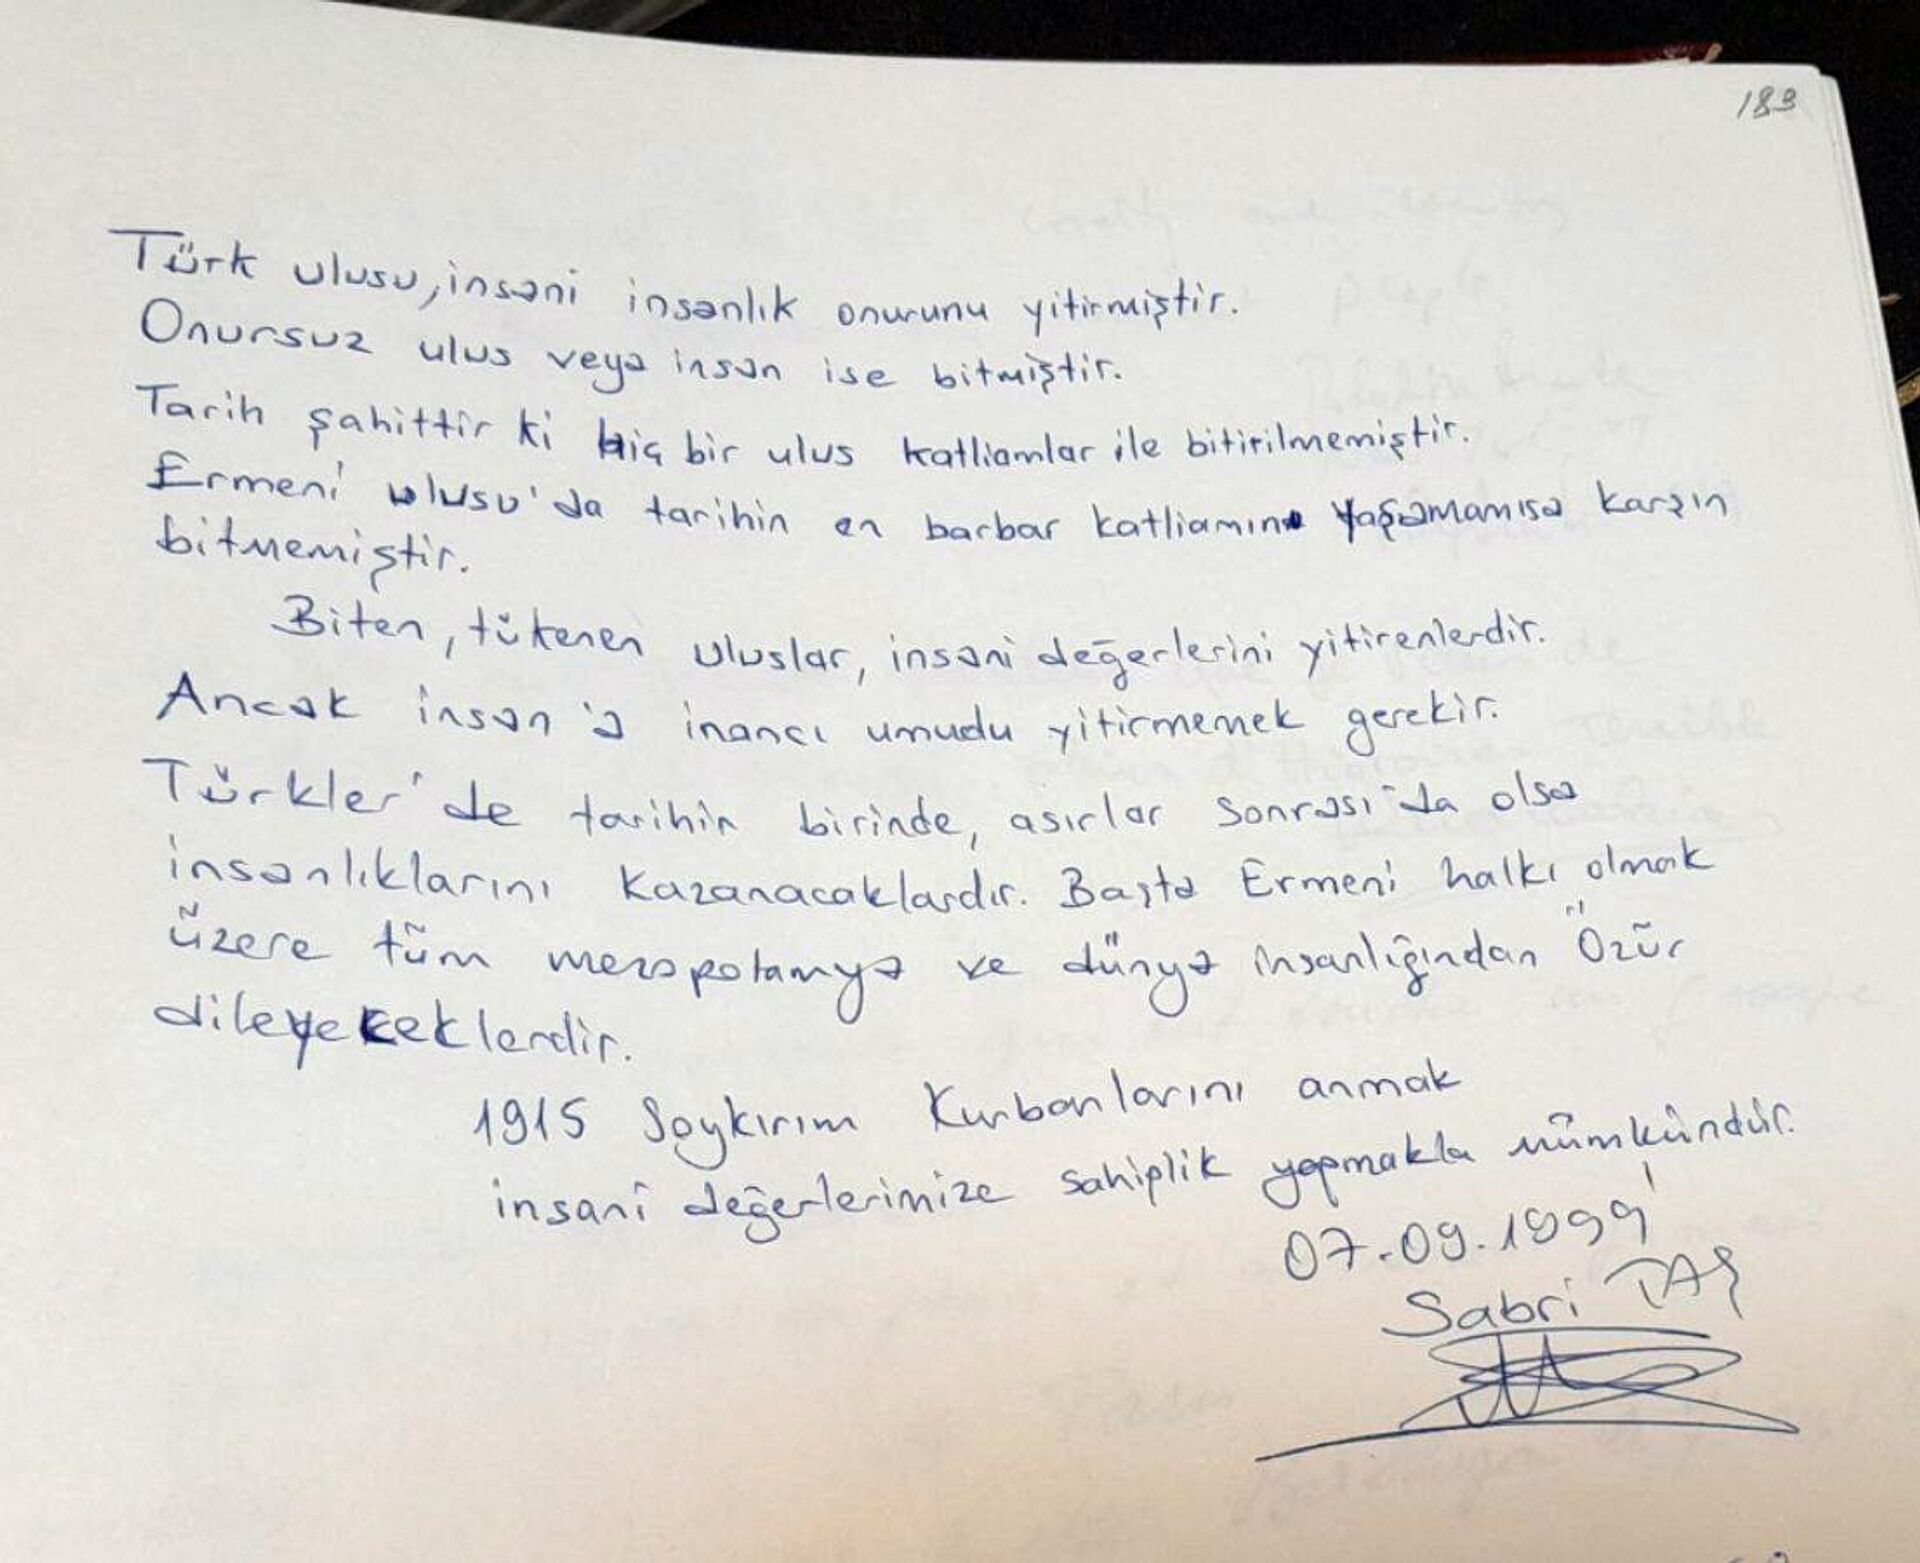 183
Türk ulusu, insani insanlık onurunu yitirmiştir.
Onursuz ulus veya insan ise bitmiştir.
Tarih şahittir ki hiç bir ulus katliamlar ile bitirilmemiştir.
Ermeni ulusu'da tarihin en barbar katliamını yaşamamısa karşın
bitmemiştir.
Biten, tükenen uluslar, insani değerlerini yitirenlerdir.
Ancak insan'a inancı umudu yitirmemek gerekir.
Türkler'de tarihin birinde, asırlar sonrası'da olsa
insanlıklarını kazanacaklardır. Başta Ermeni halkı olmak
üzere tüm mezopotamya ve dünya insanlığından Özür
dileyeceklerdir.
1915 Soykırım Kurbanlarını anmak
insanî değerlerimize sahiplik yapmakla mümkündür.
07.09.1999
Sabri TAŞ